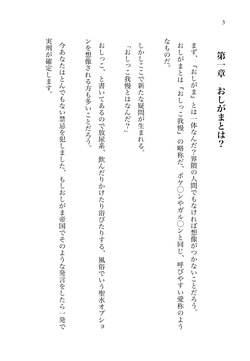 3
第一章　おしがまとは？
まず、『おしがま』とは一体なんだ？界隈の人間でもなければ想像がつかないことだろう。
おしがまとは『おしっこ我慢』の略称だ、ポケ〇ンやガル〇ンと同じ、呼びやすい愛称のよう
なものだ。
しかしここで新たな疑問が生まれる。
「おしっこ我慢とはなんだ？」
おしっこ、と書いてあるので放尿系、飲んだりかけたり浴びたりする、風俗でいう聖水オプショ
ンを想像される方も多いことだろう。
今あなたはとんでもない禁忌を犯しました、もしおしがま帝国でそのような発言をしたら一発で
実刑が確定します。